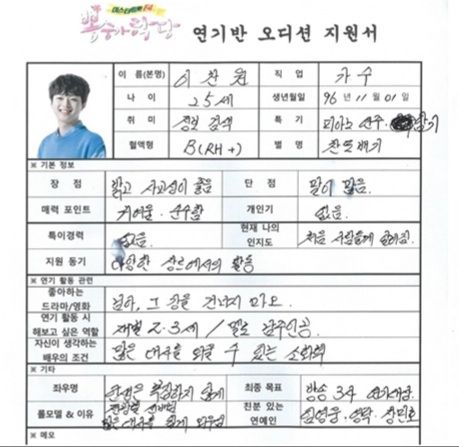 미스터트롯 F4
뽕숭아학당 연기반 오디션 지원서
이 름(본명) 이찬원 직 업 가수
나 이 25세 생년월일 96년 11월 01일
취 미 정보 검색 특 기 피아노 연주
혈액형 B(RH+) 별 명 찬또배기
※ 기본 정보
장 점 밝고 사교성이 좋음 단 점 말이 많음.
매력 포인트 귀여움 순수함 개인기 없음.
특이경력 없음. 현재 나의 인지도
지원 동기 다양한 장르에서의 활동
※ 연기 활동 관련
좋아하는 드라마/영화 님아, 그 강을 건너지 마오.
연기 활동 시 해보고 싶은 역할 재벌 2·3세 / 멜로 남주인공
자신이 생각하는 배우의 조건 많은 대사를 외울 수 있는 소화력
※ 기타
좌우명 최종 목표 방송 3사 연기대상
롤모델 & 이유 친분 있는 연예인 임영웅·영탁·장민호
※ 메모